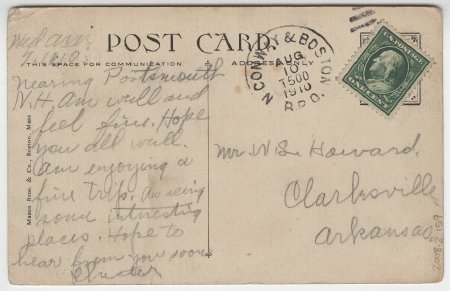 Wed
POST CARD.
THIS SPACE FOR COMMUNICATION
ADDRESS ONLY
N. CONWAY & BOSTON
AUG
10
1910
R.P.O.
U.S. POSTAGE
ONE CENT
nearing Portsmouth
N.H. Am well and
feel fine. Hope
you all well.
Am enjoying a
fine trip. Am seing
some interesting
places. Hope to
hear from you soon
Mr W.S. Howard.
Clarksville
Arkansas
Mason Bros. & Co., Boston, Mass
2018.2.159